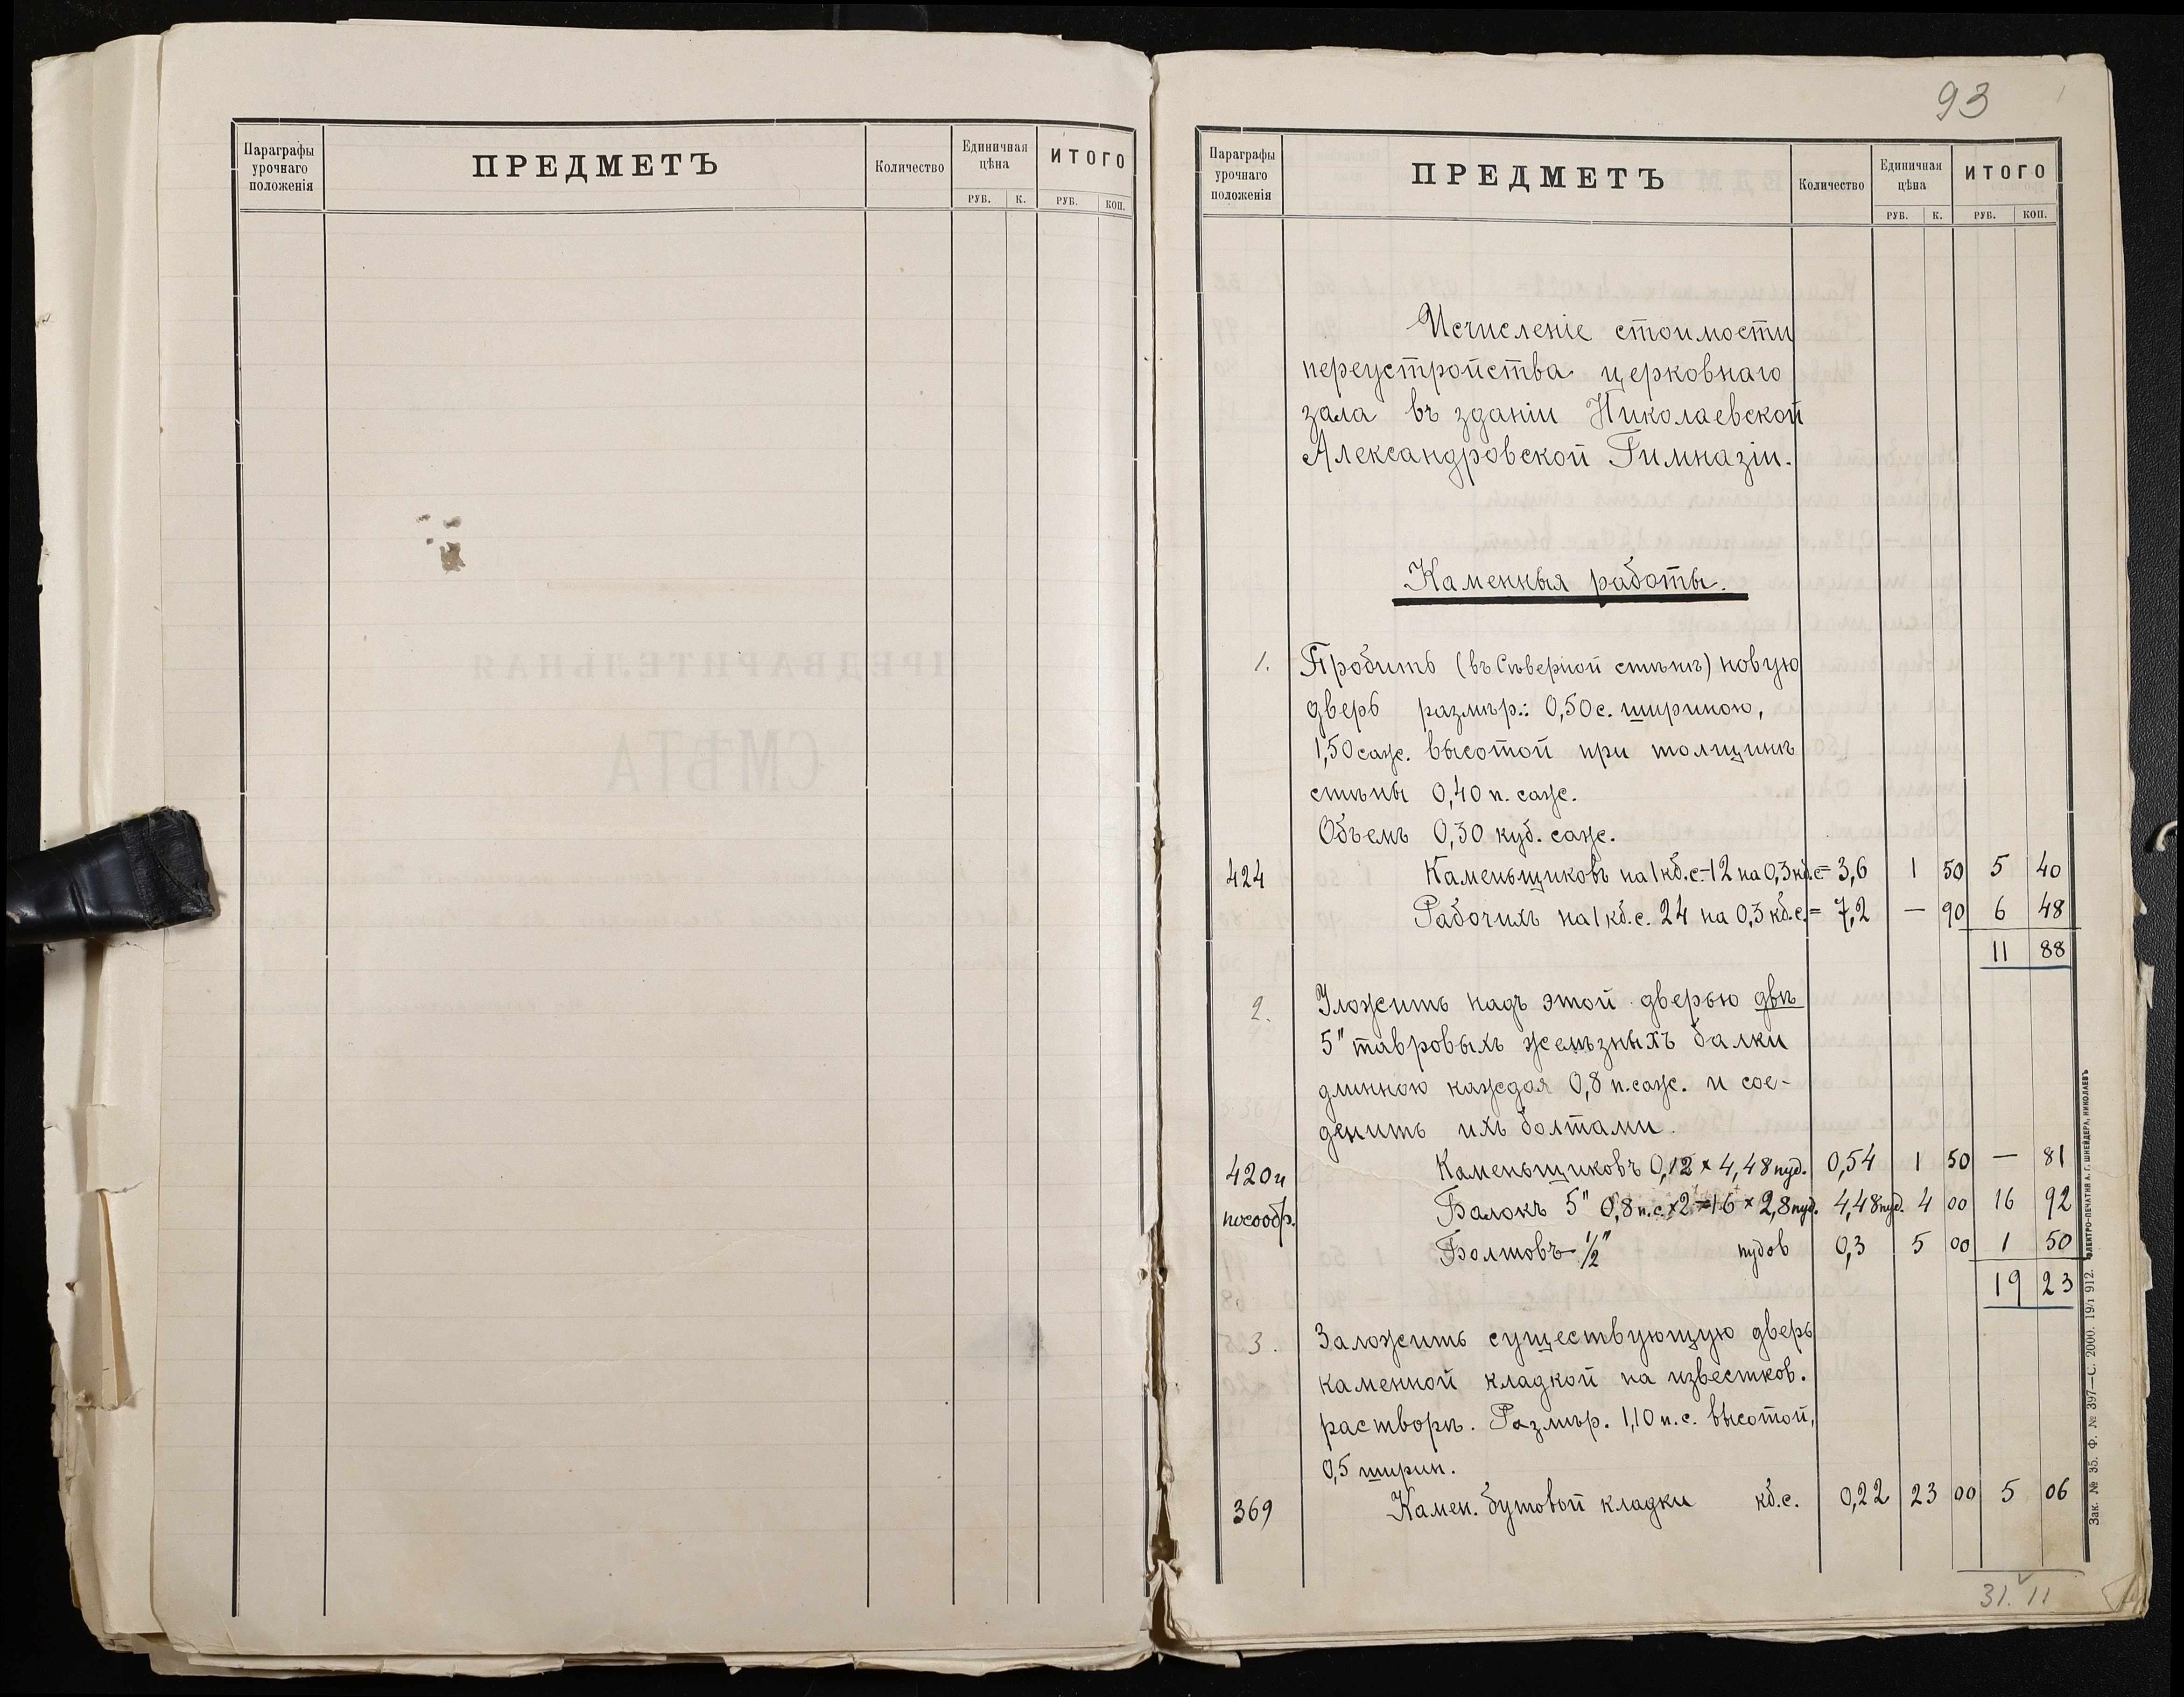 Параграфы
урочнаго
положенія
ПРЕДМЕТЪ
Количество
Единичная
цѣна
ИТОГО
РУБ. К. РУБ. КОП.
93
Параграфы
урочнаго
положенія
ПРЕДМЕТЪ
Количество
Единичная
цѣна
ИТОГО
РУБ. К. РУБ. КОП.
Исчисленіе стоимости
переустройства церковнаго
зала въ зданіи Николаевской
Александровской Гимназіи.
Каменныя работы.
1. Пробить (въ Сѣверной стѣнѣ) новую
дверь размѣр.: 0,50 с. шириною,
1,50 саж. высотой при толщинѣ
стѣны 0,40 п. саж.
Объемъ 0,30 куб. саж.
424 Каменьщиковъ на 1 кб.с.-12 на 0,3 кб.с.= 3,6 1 50 5 40
Рабочихъ на 1 кб.с. 24 на 0,3 кб.с.= 7,2 — 90 6 48
11 88
2. Уложить надъ этой дверью двѣ
5" тавровыхъ желѣзныхъ балки
длинною каждая 0,8 п.саж. и сое-
денить ихъ болтами.
420 и Каменьщиковъ 0,12 × 4,48 пуд. 0,54 1 50 — 81
посообр. Балокъ 5" 0,8 п.с.×2=1,6 × 2,8 пуд. 4,48 пуд. 4 00 16 92
Болтовъ 1/2" пудов 0,3 5 00 1 50
19 23
3. Заложить существующую дверь
каменной кладкой на известков.
растворѣ. Размѣр. 1,10 п.с. высотой,
0,5 ширин.
369 Камен. бутовой кладки кб.с. 0,22 23 00 5 06
31. 11
Зак. № 35. Ф. № 397—С. 2000. 19/I 912. ЭЛЕКТРО-ПЕЧАТНЯ А. Г. ШНЕЙДЕРА, НИКОЛАЕВЪ